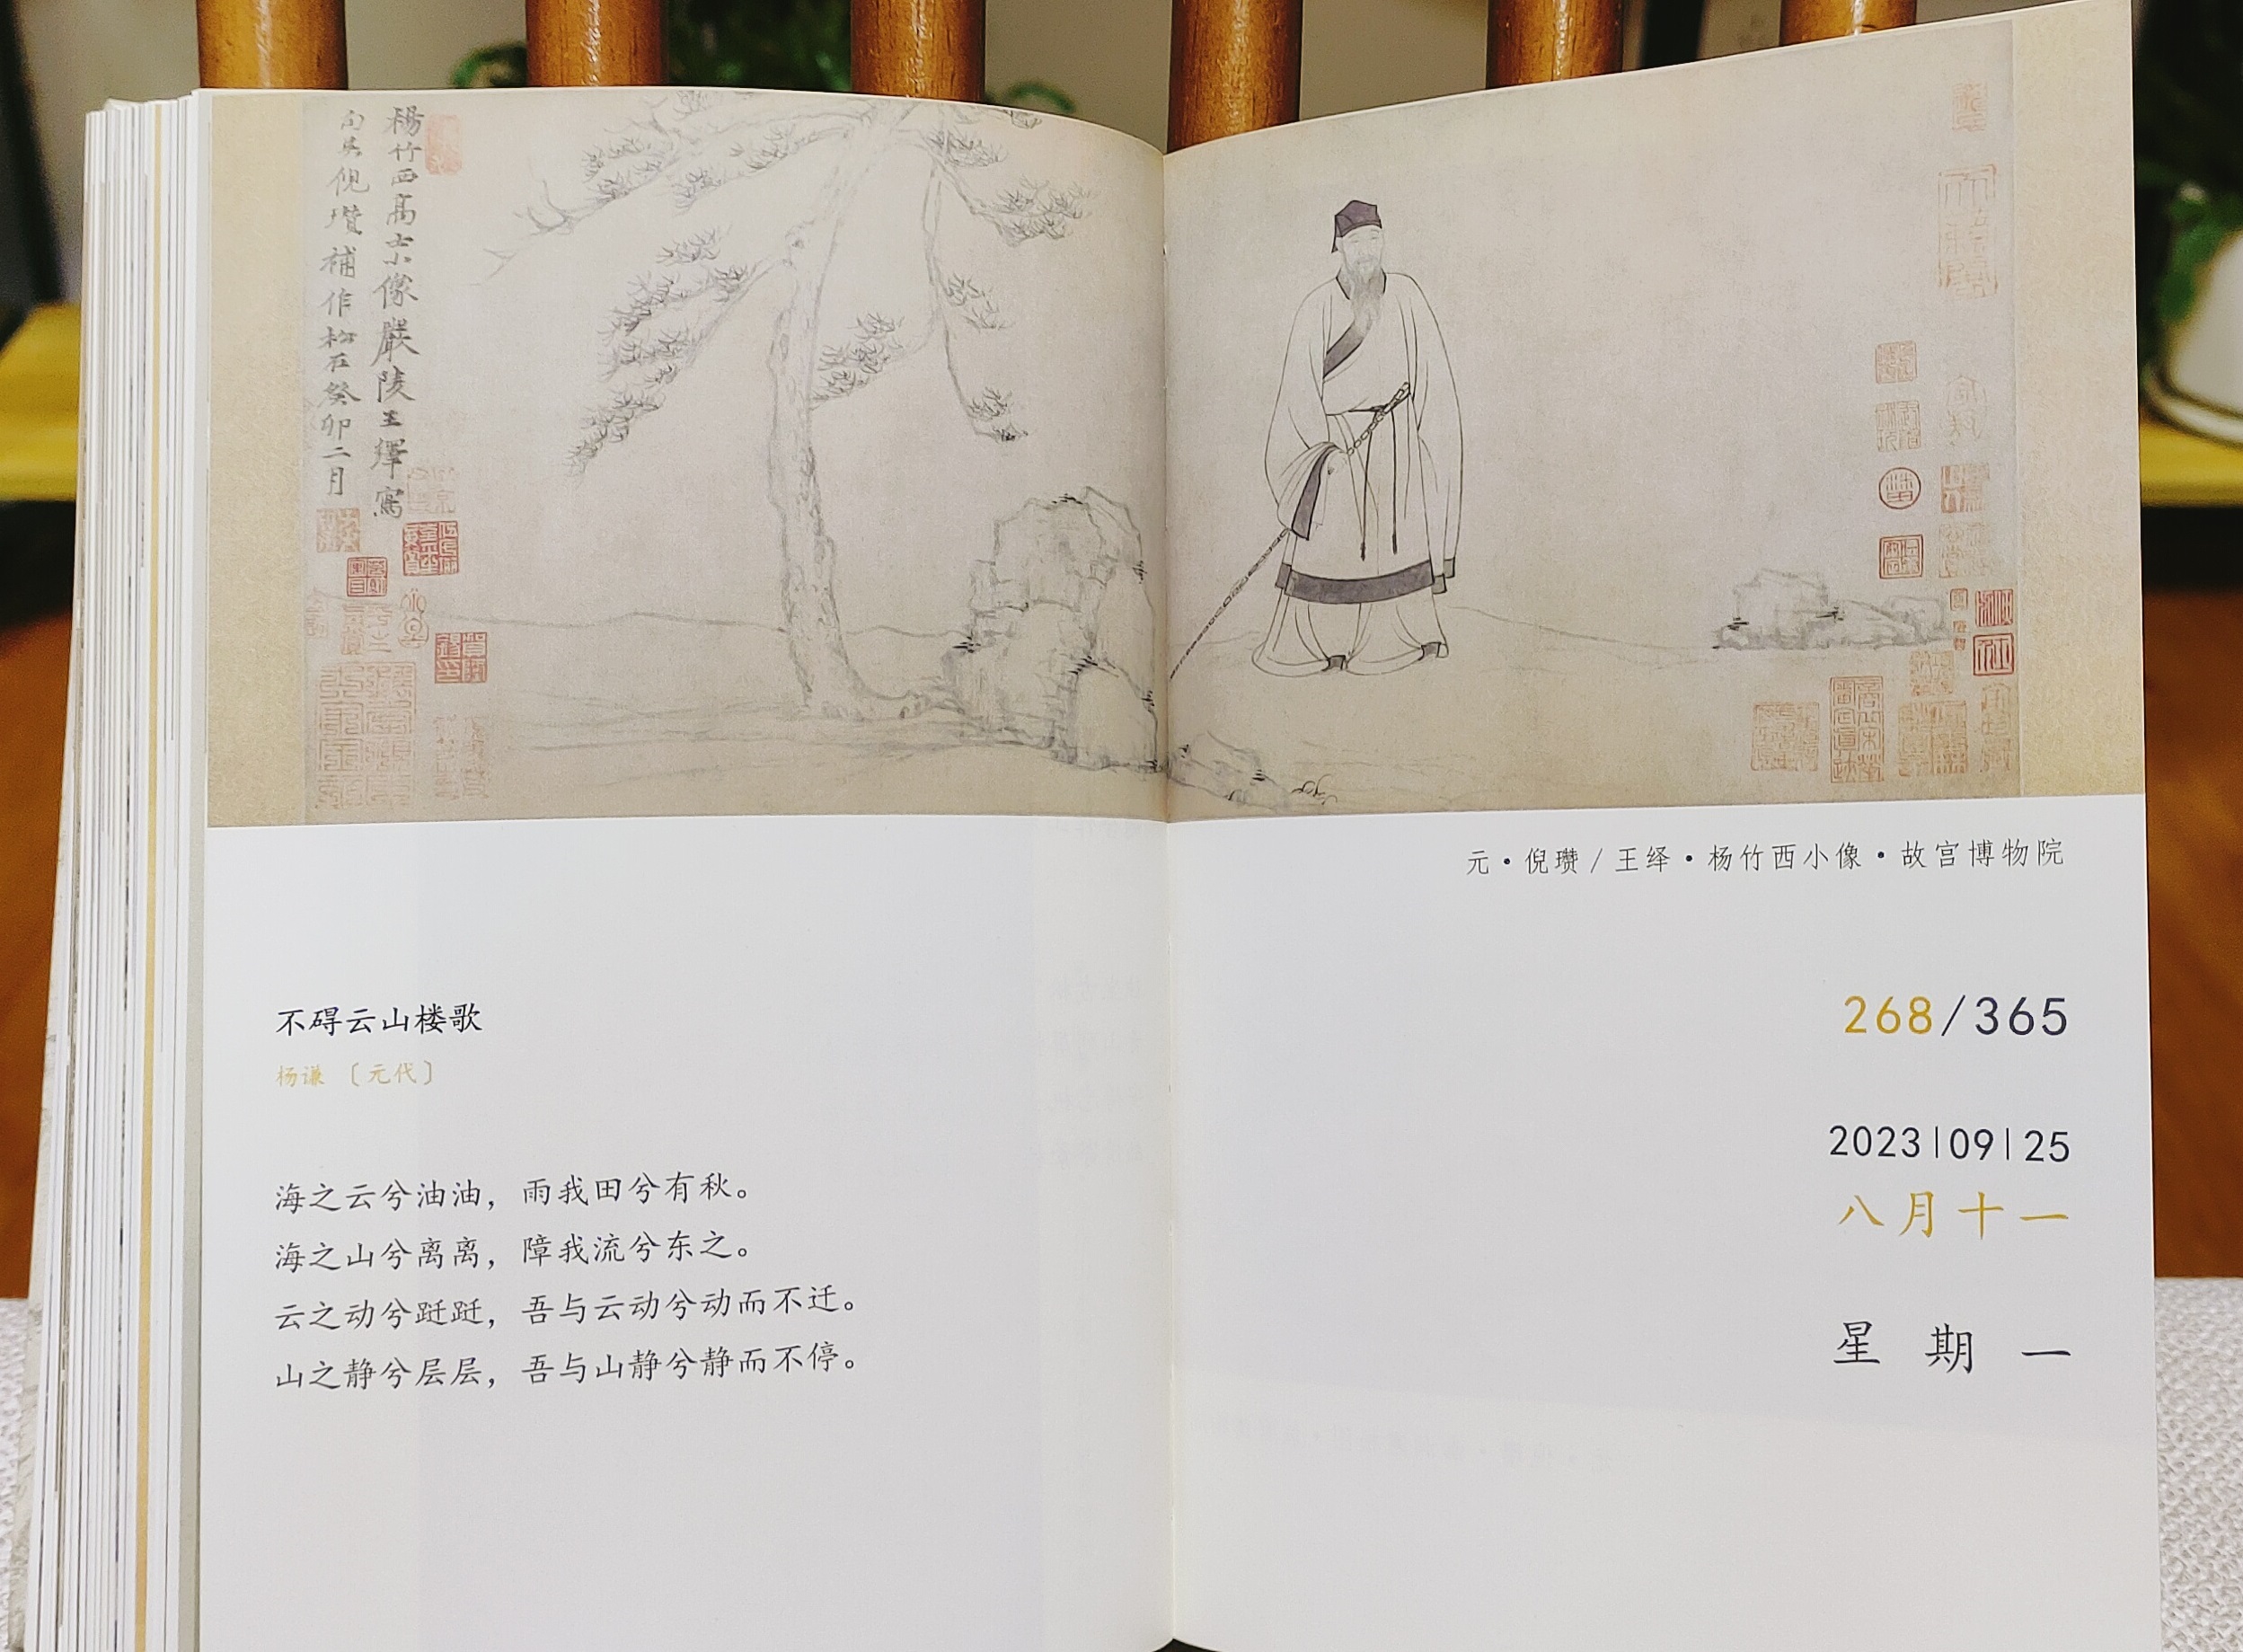 楊竹西高士小像嚴陵王繹寫
句吳倪瓚補作松石癸卯二月
元·倪瓒/王绎·杨竹西小像·故宫博物院
不碍云山楼歌
杨谦〔元代〕
海之云兮油油，雨我田兮有秋。
海之山兮离离，障我流兮东之。
云之动兮跹跹，吾与云动兮动而不迁。
山之静兮层层，吾与山静兮静而不停。
268/365
2023|09|25
八月十一
星期一